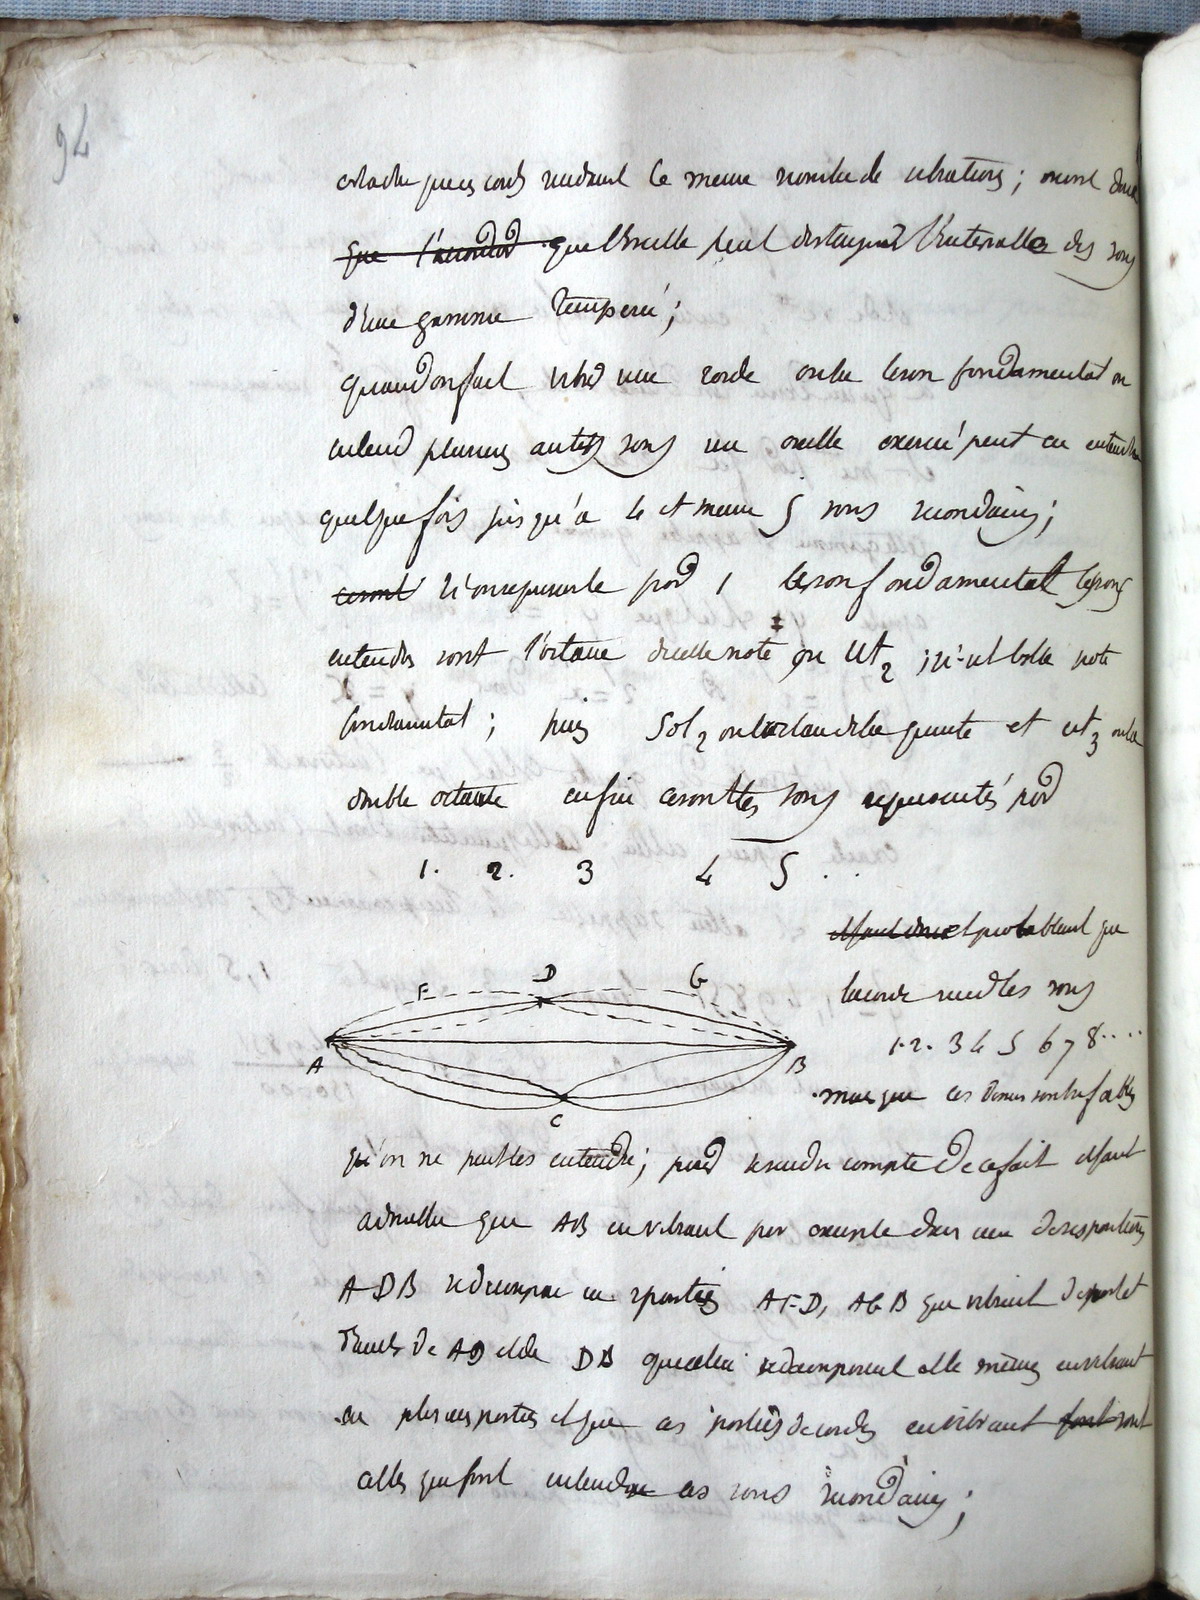 94
que ces cordes rendent le meme nombre de vibrations; donc
que l'accord que l'oreille peut distinguer l'intervalle des sons
d'une gamme temperé;
quand on fait vibrer une corde outre le son fondamental on
entend plusieurs autres sons une oreille exercé peut en entendre
quelque fois jusqu'a 4 et meme 5 sons secondaires;
ce sont si on represente par 1 le son fondamental les sons
entendus sont l'octave de cette note ou Ut 2 ; si ut est la note
fondamental ; puis Sol 2 ou l'octave de la quinte et ut 3 ou la
double octave enfin ce sont les sons representés par
1. 2. 3 4 5 . .
il faut donc et probablement que
la corde rend les sons
1. 2. 3 4 5 6 7 8....
mais que ces derniers sont si faibles
F D G
A B
C
qu'on ne peut les entendre; pour se rendre compte de ce fait il faut
admettre que AB en vibrant par exemple dans une de ses positions
ADB se decompose en 2 parties AFD, AGB qui vibrent de part et
d'autre de AD et de DB que celles ci se decomposent elle mêmes en vibrant
en plusieurs parties et que ces parties de cordes en vibrant font sont
celles qui font entendre ces sons secondaires;